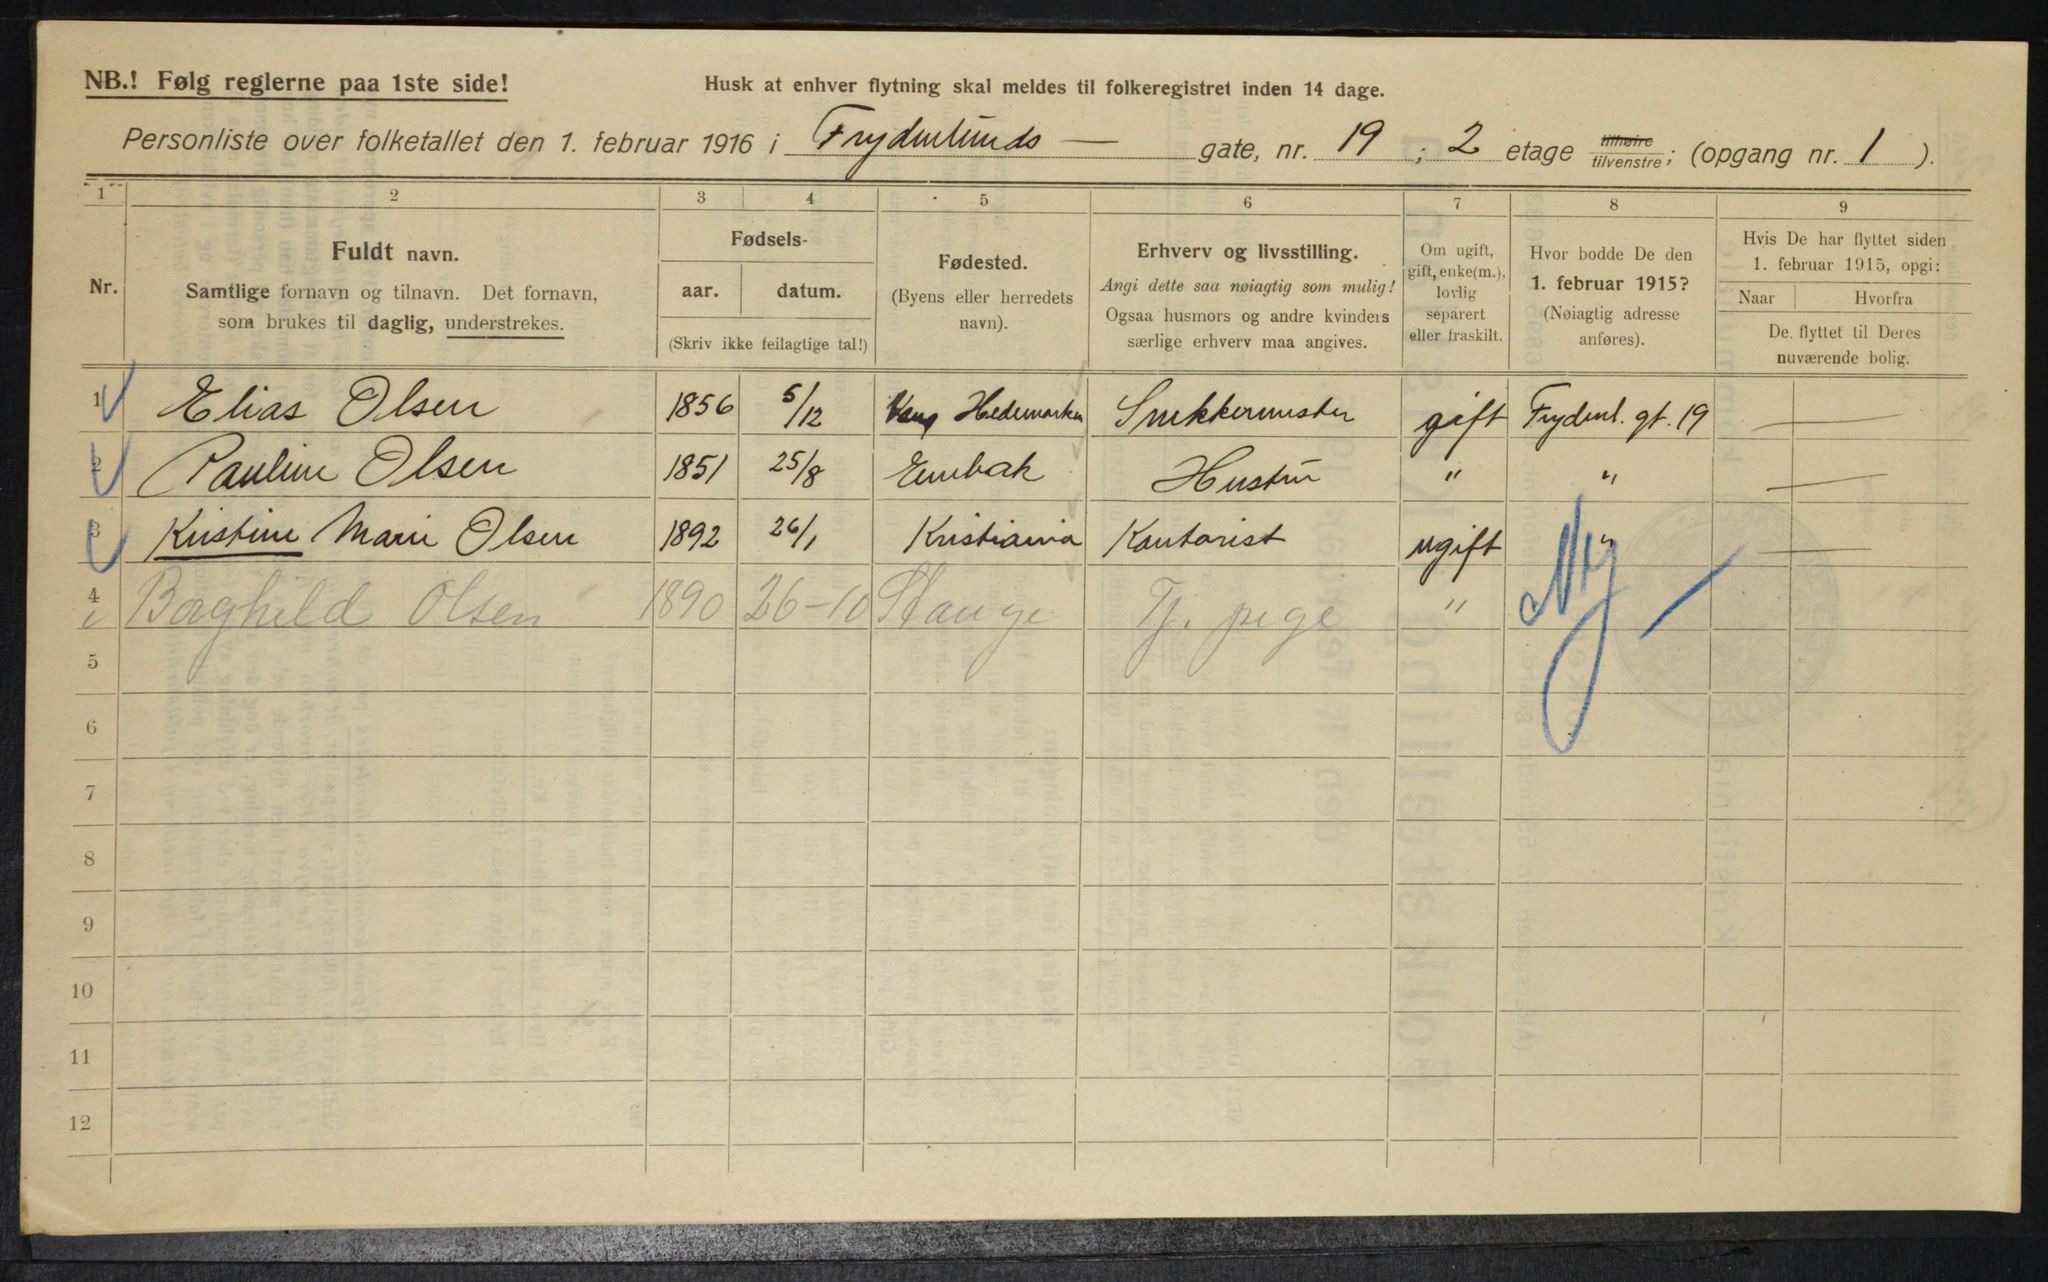 NB.! Følg reglerne paa 1ste side!
Husk at enhver flytning skal meldes til folkeregistret inden 14 dage.
Personliste over folketallet den 1. februar 1916 i Frydenlunds — gate, nr. 19 ; 2 etage tilhøire tilvenstre; (opgang nr. 1 ).
1 2 3 4 5 6 7 8 9
Nr.
Fuldt navn.
Samtlige fornavn og tilnavn. Det fornavn,
som brukes til daglig, understrekes.
Fødsels-
aar. datum.
(Skriv ikke feilagtige tal!)
Fødested.
(Byens eller herredets
navn).
Erhverv og livsstilling.
Angi dette saa nøiagtig som mulig!
Ogsaa husmors og andre kvinders
særlige erhverv maa angives.
Om ugift,
gift, enke(m.),
lovlig
separert
eller fraskilt.
Hvor bodde De den
1. februar 1915?
(Nøiagtig adresse
anføres).
Hvis De har flyttet siden
1. februar 1915, opgi:
Naar Hvorfra
De flyttet til Deres
nuværende bolig.
1 Elias Olsen 1856 5/12 Vang Hedemarken Snekkermester gift Frydenl. gt. 19 —
2 Pauline Olsen 1851 25/8 Embak Hustru " " —
3 Kristine Marie Olsen 1892 26/1 Kristiania Kontorist ugift " —
4 Borghild Olsen 1890 26-10 Stange Tj. pige " Ny —
5
6
7
8
9
10
11
12